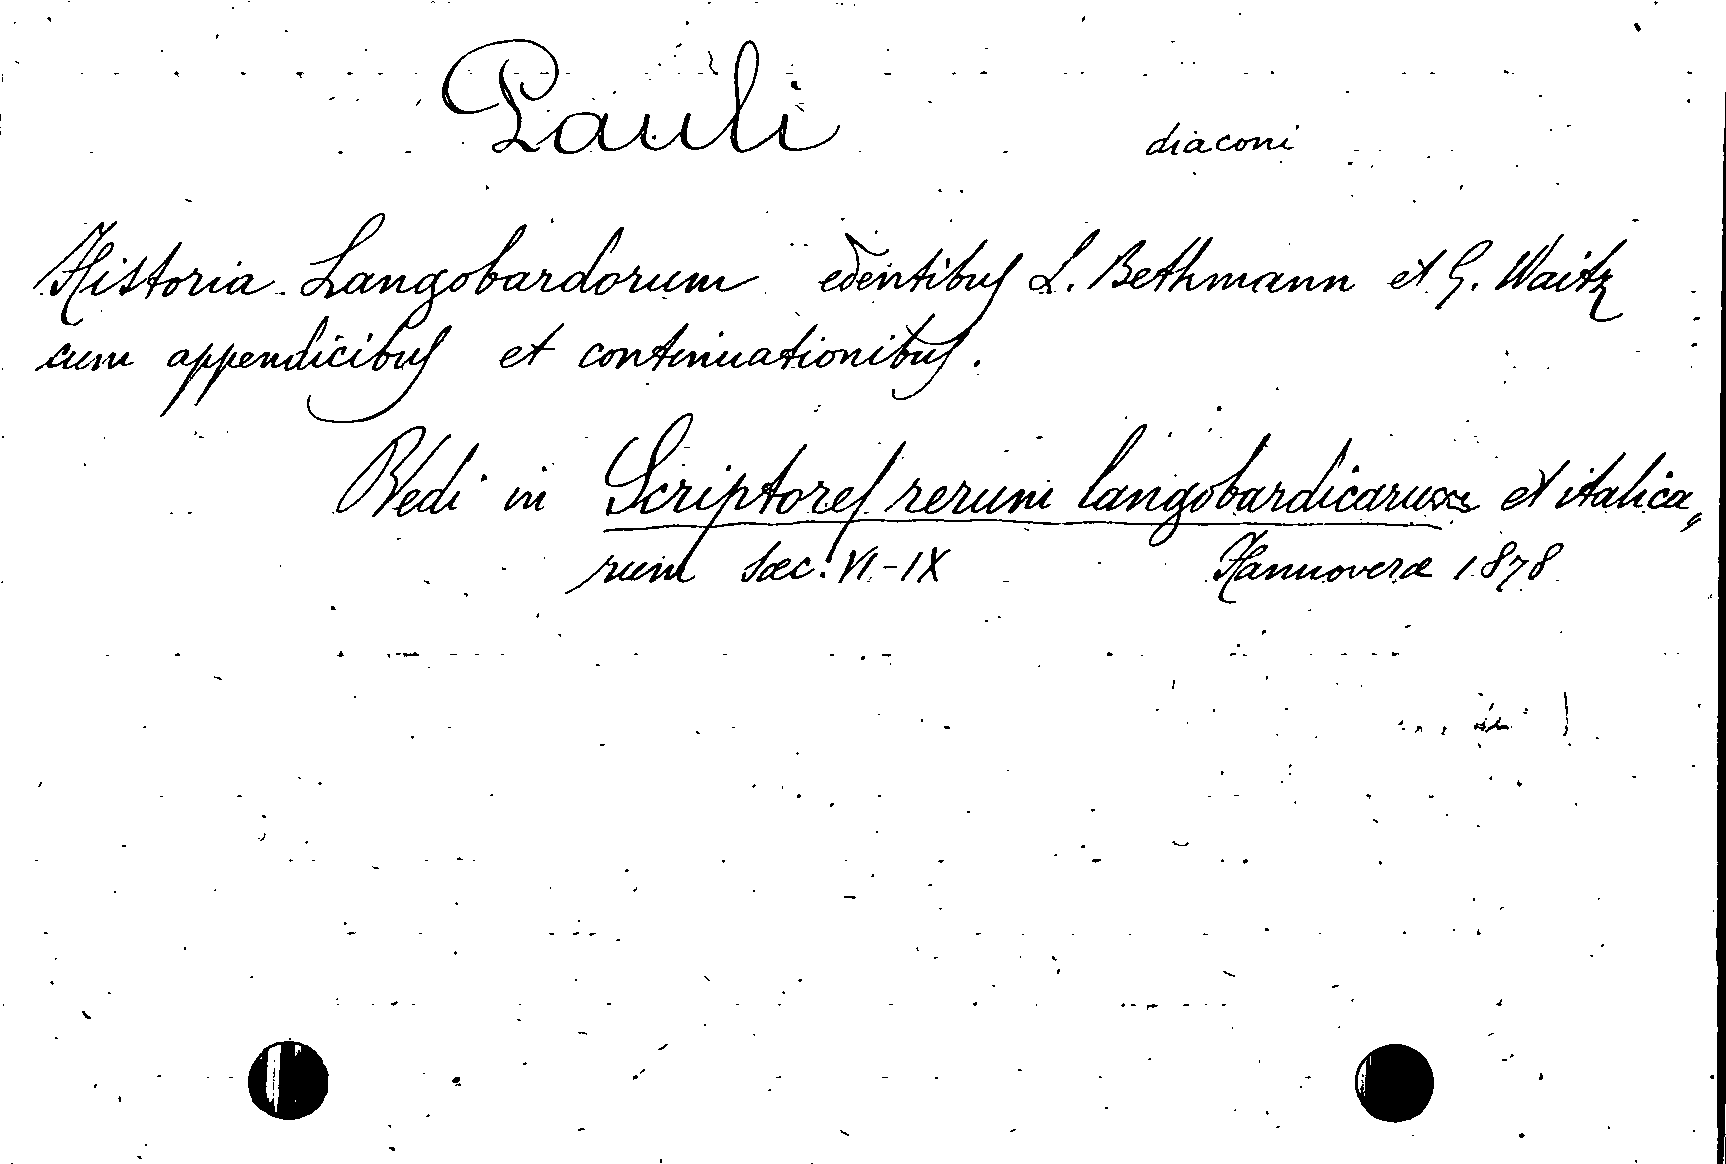 Pauli diaconi
Historia Langobardorum edentibus L. Bethmann et G. Waitz
cum appendicibus et continuationibus.
Vedi in Scriptores rerum langobardicarum et italica„
rum sæc. VI-IX Hannoveræ 1878